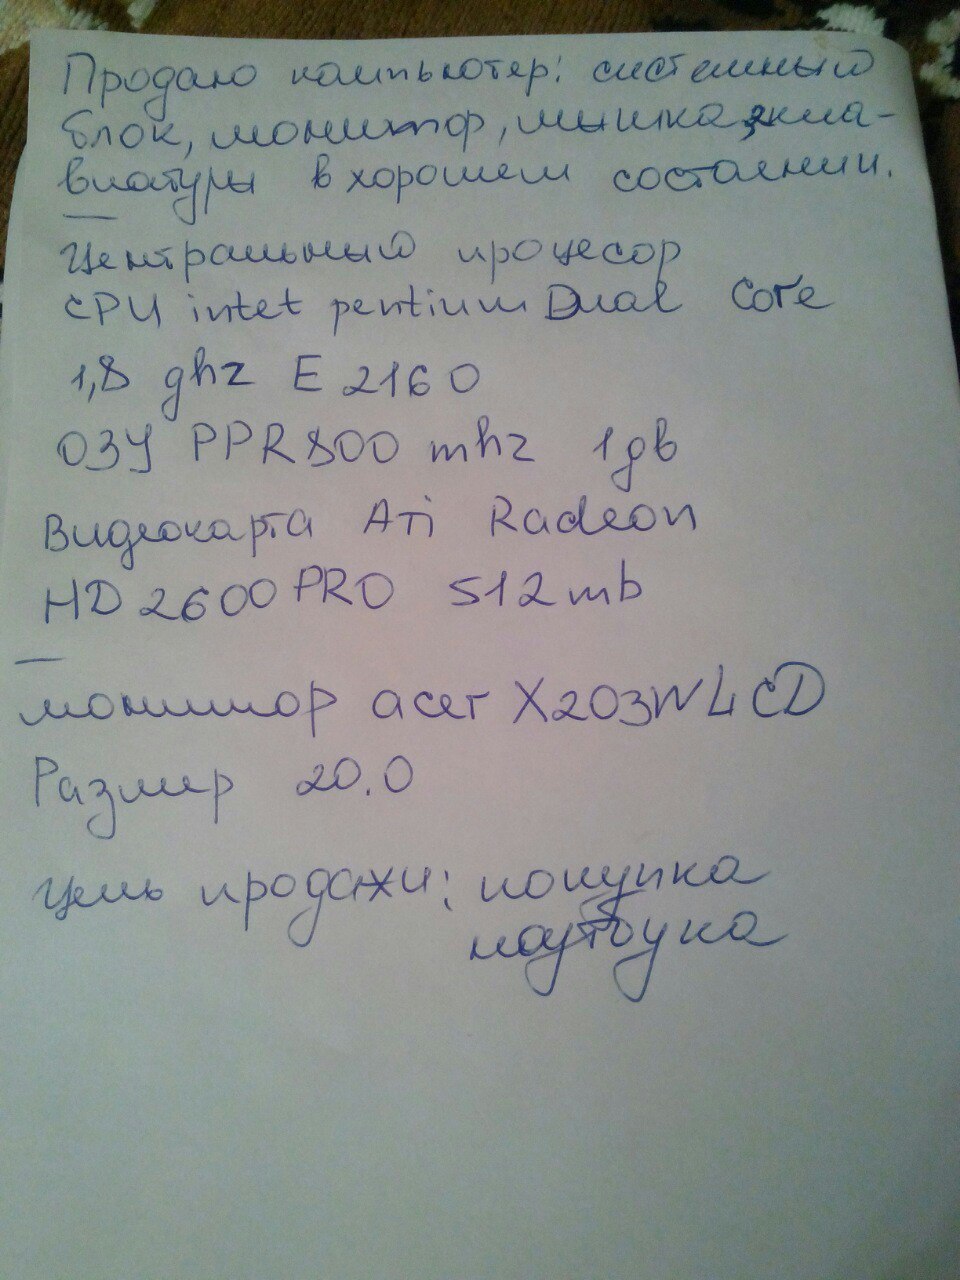 Продаю компьютер: системный
блок, монитор, мышка, кла-
виатуры в хорошем состоянии.
Центральный процесор
CPU intet pentium Dual Core
1,8 ghz E 2160
ОЗУ PPR 800 mhz 1gb
Видеокарта Ati Radeon
HD 2600 PRO 512 mb
монитор acer X203W LCD
Размер 20.0
Цель продажи: покупка
ноутбука